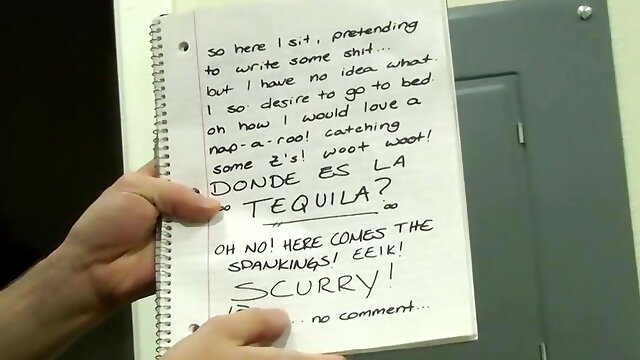 so here I sit, pretending
to write some shit...
but I have no idea what.
I so desire to go to bed.
oh how I would love a
nap-a-roo! catching
some z's! woot woot!
DONDE ES LA
TEQUILA?
OH NO! HERE COMES THE
SPANKINGS! EEIK!
SCURRY!
... no comment...